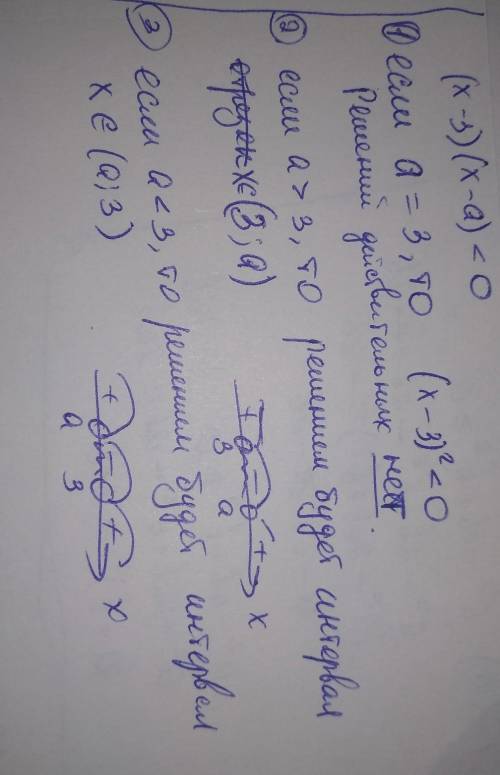 (x-3)(x-a)<0
① если a=3, то (x-3)²<0
Решений действительных нет.
② если a>3, то решением будет интервал
отрезок x∈(3; a)
+ - + x
3 a
③ если a<3, то решением будет интервал
x∈(a; 3)
+ - + x
a 3